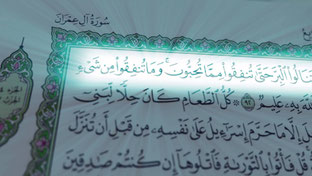 سُورَةُ آلِ عِمْرَانَ
تَنَالُوا۟ ٱلْبِرَّ حَتَّىٰ تُنفِقُوا۟ مِمَّا تُحِبُّونَ ۚ وَمَا تُنفِقُوا۟ مِن شَىْءٍ
بِهِۦ عَلِيمٌ ﴿٩٢﴾ كُلُّ ٱلطَّعَامِ كَانَ حِلًّا لِّبَنِىٓ
إِلَّا مَا حَرَّمَ إِسْرَٰٓءِيلُ عَلَىٰ نَفْسِهِۦ مِن قَبْلِ أَن تُنَزَّلَ
قُلْ فَأْتُوا۟ بِٱلتَّوْرَىٰةِ فَٱتْلُوهَآ إِن كُنتُمْ صَٰدِقِينَ